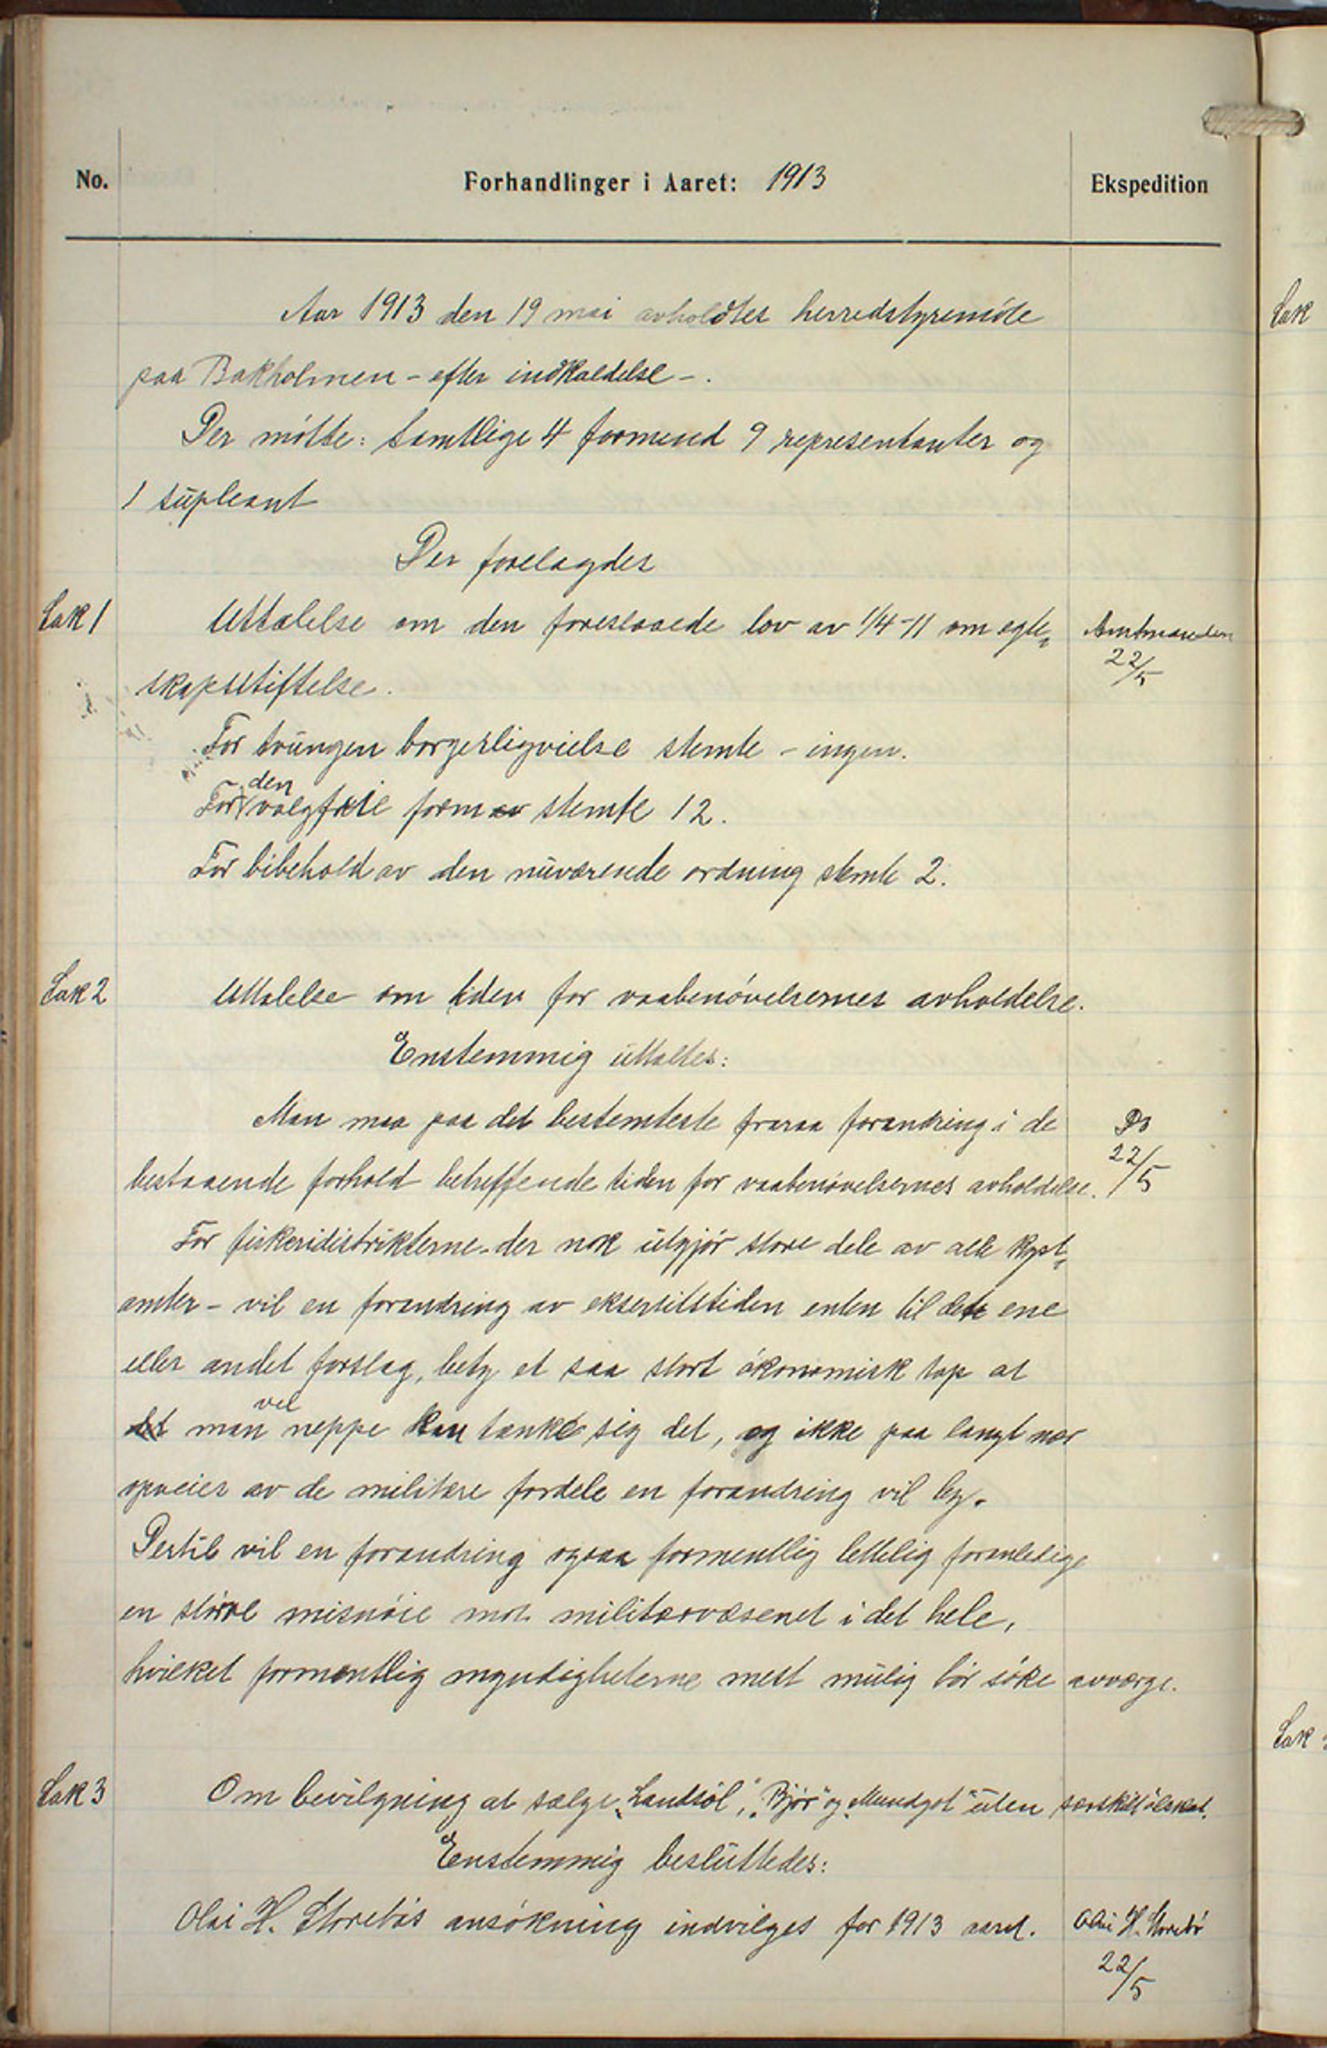 No. Forhandlinger i Aaret: 1913 Ekspedition
Aar 1913 den 19 mai avholdtes herredstyremöte
paa Bakholmen - efter indkaldelse -.
Der mötte: Samtlige 4 formend 9 representanter og
1 supleant
Der forelagdes
Sak 1 Uttalelse om den foreslaaede lov av 1/4-11 om egte„ Amtmanden
22/5
skapsstiftelse.
For tvungen borgerligvielse stemte - ingen.
den
For valgfrie form av stemte 12.
For bibehold av den nuværende ordning stemte 2.
Sak 2 Uttalelse om tiden for vaabenövelsernes avholdelse.
Enstemmig uttaltes:
Man maa paa det bestemteste fraraa forandring i de Do
22/5
bestaaende forhold betreffende tiden for vaabenövelsernes avholdelse.
For fiskeridistrikterne - der nok utgjör store dele av alle kyst„
amter - vil en forandring av eksersitstiden enten til det ene
eller andet forslag, bety et saa stort ökonomisk tap at
vel
det man neppe kan tænke sig det, og ikke paa langt nær
opveies av de militære fordele en forandring vil by.
Dertil vil en forandring ogsaa formentlig lettelig foranledige
en större misnöie mot militærvæsenet i det hele,
hvilket formentlig myndigheterne mest mulig bör söke avværge.
Sak 3 Om bevilgning at sælge „Landsöl", „Bjør" og „Mundgot" uten særskilt ölskat.
Enstemmig besluttedes:
Olai H. Storebös ansökning indvilges for 1913 aaret. Olai H. Storebö
22/5
Sak
Sak